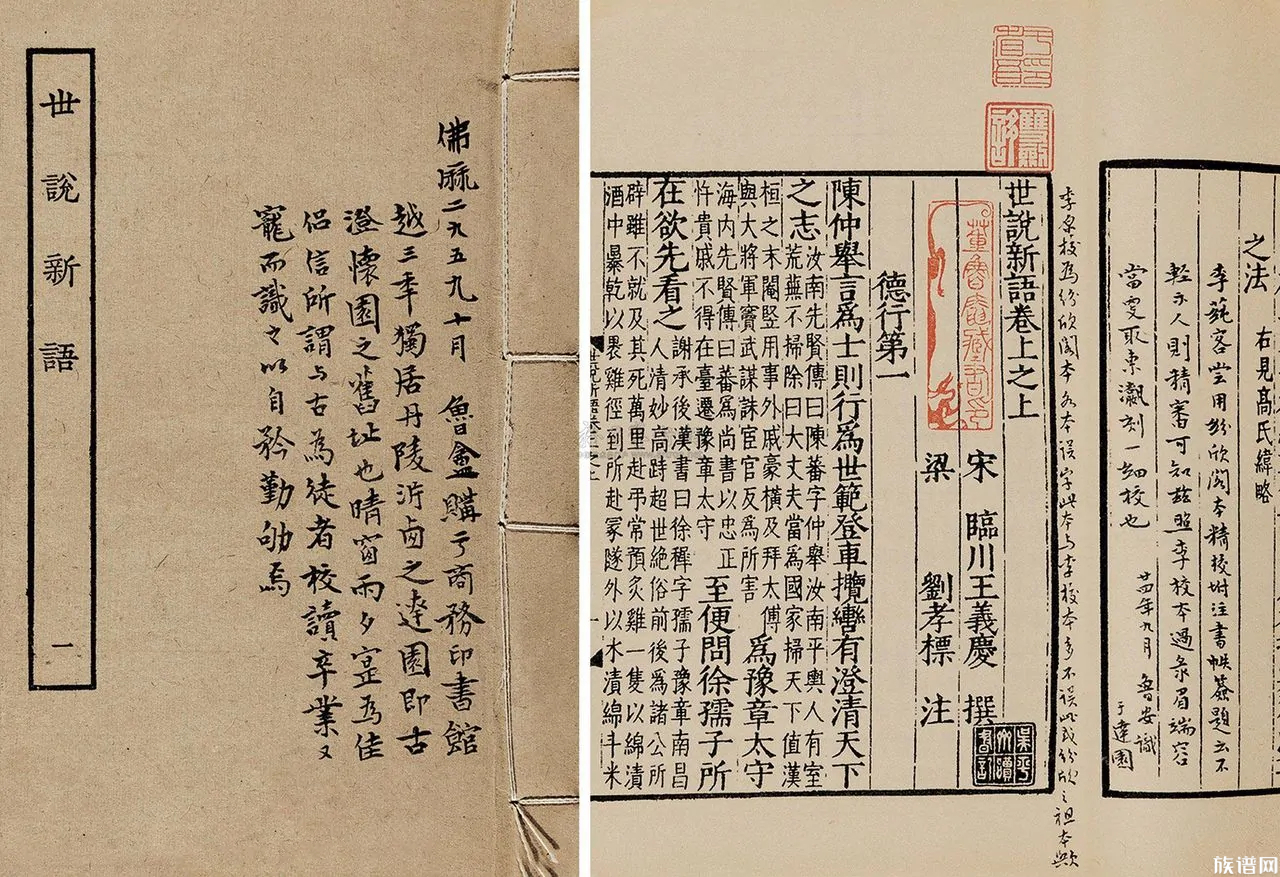 世說新語
一
佛厤二九五九十月 魯盦購于商務印書館
越三年獨居丹陵沜西之達園即古
澄懷園之舊址也晴窗雨夕寔爲佳
侶信所謂与古為徒者校讀卒業又
寵而識之以自矜勤劬焉
之法 右見高氏緯略
李蒓客嘗用紛欣閣本精校坿注書帙簽題云不
輕示人則精審可知茲照李校本過彔眉端容
當更取袁瀫刻一細校也
廿四年九月 魯安識
于達園
李氏校爲紛欣閣本 本誤字此本与李校本多不誤此或紛欣之祖本歟
世說新語卷上之上
宋 臨川王義慶 撰
梁 劉孝標 注
德行第一
陳仲舉言爲士則行爲世範登車攬轡有澄清天下
之志
汝南先賢傳曰陳蕃字仲舉汝南平輿人有室
荒蕪不掃除曰大丈夫當爲國家掃天下值漢
桓之末閹豎用事外戚豪橫及拜太傅
與大將軍竇武謀誅宦官反爲所害
爲豫章太守
海內先賢傳曰蕃爲尚書以忠正
忤貴戚不得在臺遷豫章太守
至便問徐孺子所
在欲先看之
謝承後漢書曰徐穉字孺子豫章南昌
人清妙高跱超世絕俗前後爲諸公所
辟雖不就及其死萬里赴弔常預炙雞一隻以綿漬
酒中暴乾以裹雞徑到所赴冢隧外以水漬綿斗米
董魯盫藏書印
族谱网